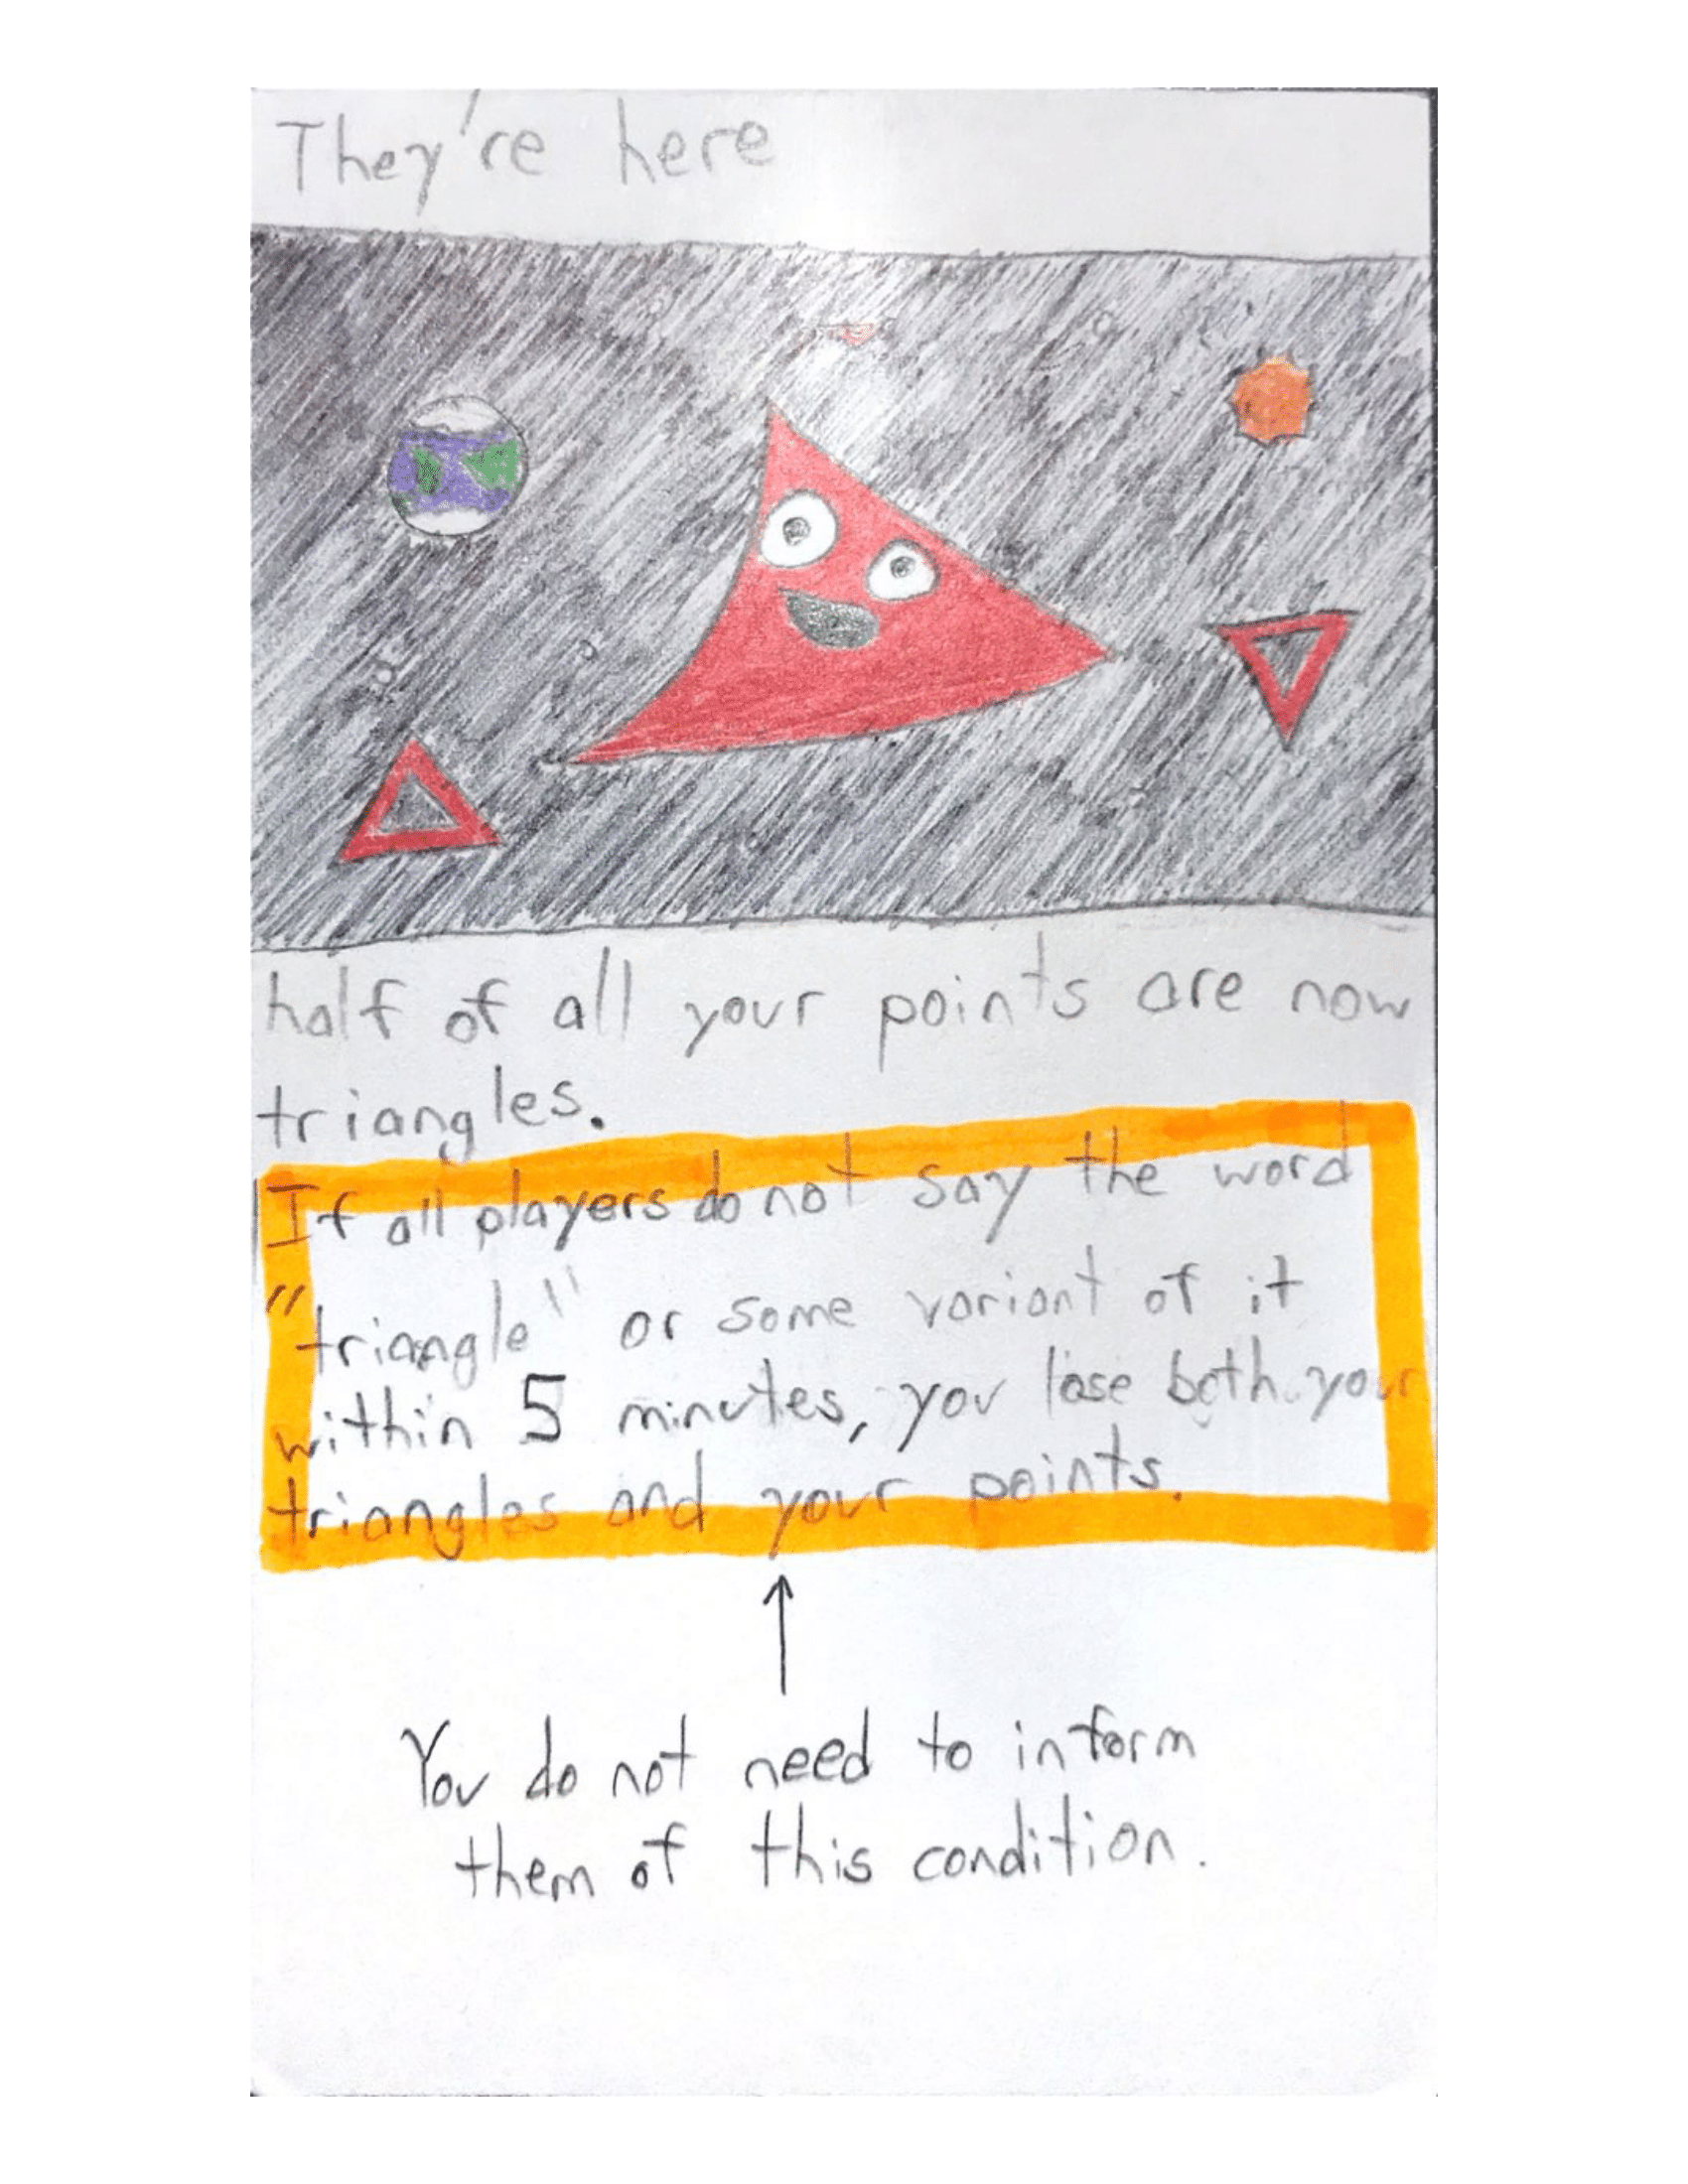 They're here
half of all your points are now
triangles.
If all players do not say the word
"triangle" or some variant of it
within 5 minutes, you lose both your
triangles and your points.
You do not need to inform
them of this condition.